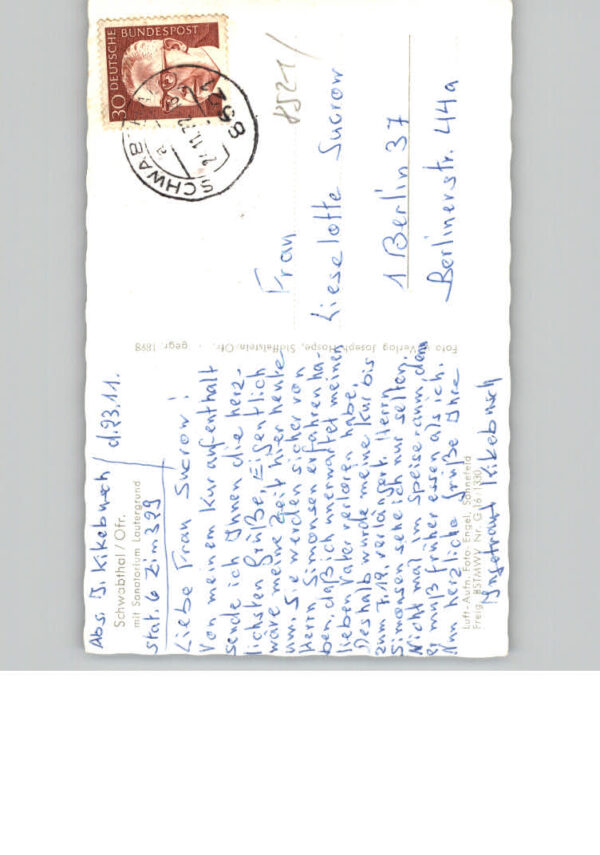 Abs. I. Kikebusch / d. 23.11.
Schwabthal / Ofr.
mit Sanatorium Lautergrund
stat. 6 Zim 399
Liebe Frau Sucrow!
Von meinem Kuraufenthalt
sende ich Ihnen die herz-
lichsten Grüße, Eigentlich
wäre meine Zeit hier heute
um. Sie werden sicher von
Herrn Simonsen erfahren ha-
ben, daß ich unerwartet meinen
lieben Vater verloren habe,
Deshalb wurde meine Kur bis
zum 7.12. verlängert. Herrn
Simonsen sehe ich nur selten.
Nicht mal im Speiseraum, denn
er muß früher essen als ich.
Nun herzliche Grüße Ihre
Ingetraut Kikebusch
Luft-Aufn. Foto-Engel, Sonnefeld
Freig. BSTMWV Nr. G 16/1330
Foto u. Verlag Joseph Hospe, Staffelstein/Ofr. · gegr. 1898
30 DEUTSCHE BUNDESPOST
8521 SCHWAB
8521/
Frau
Lieselotte Sucrow
1 Berlin 37
Berlinerstr. 44a